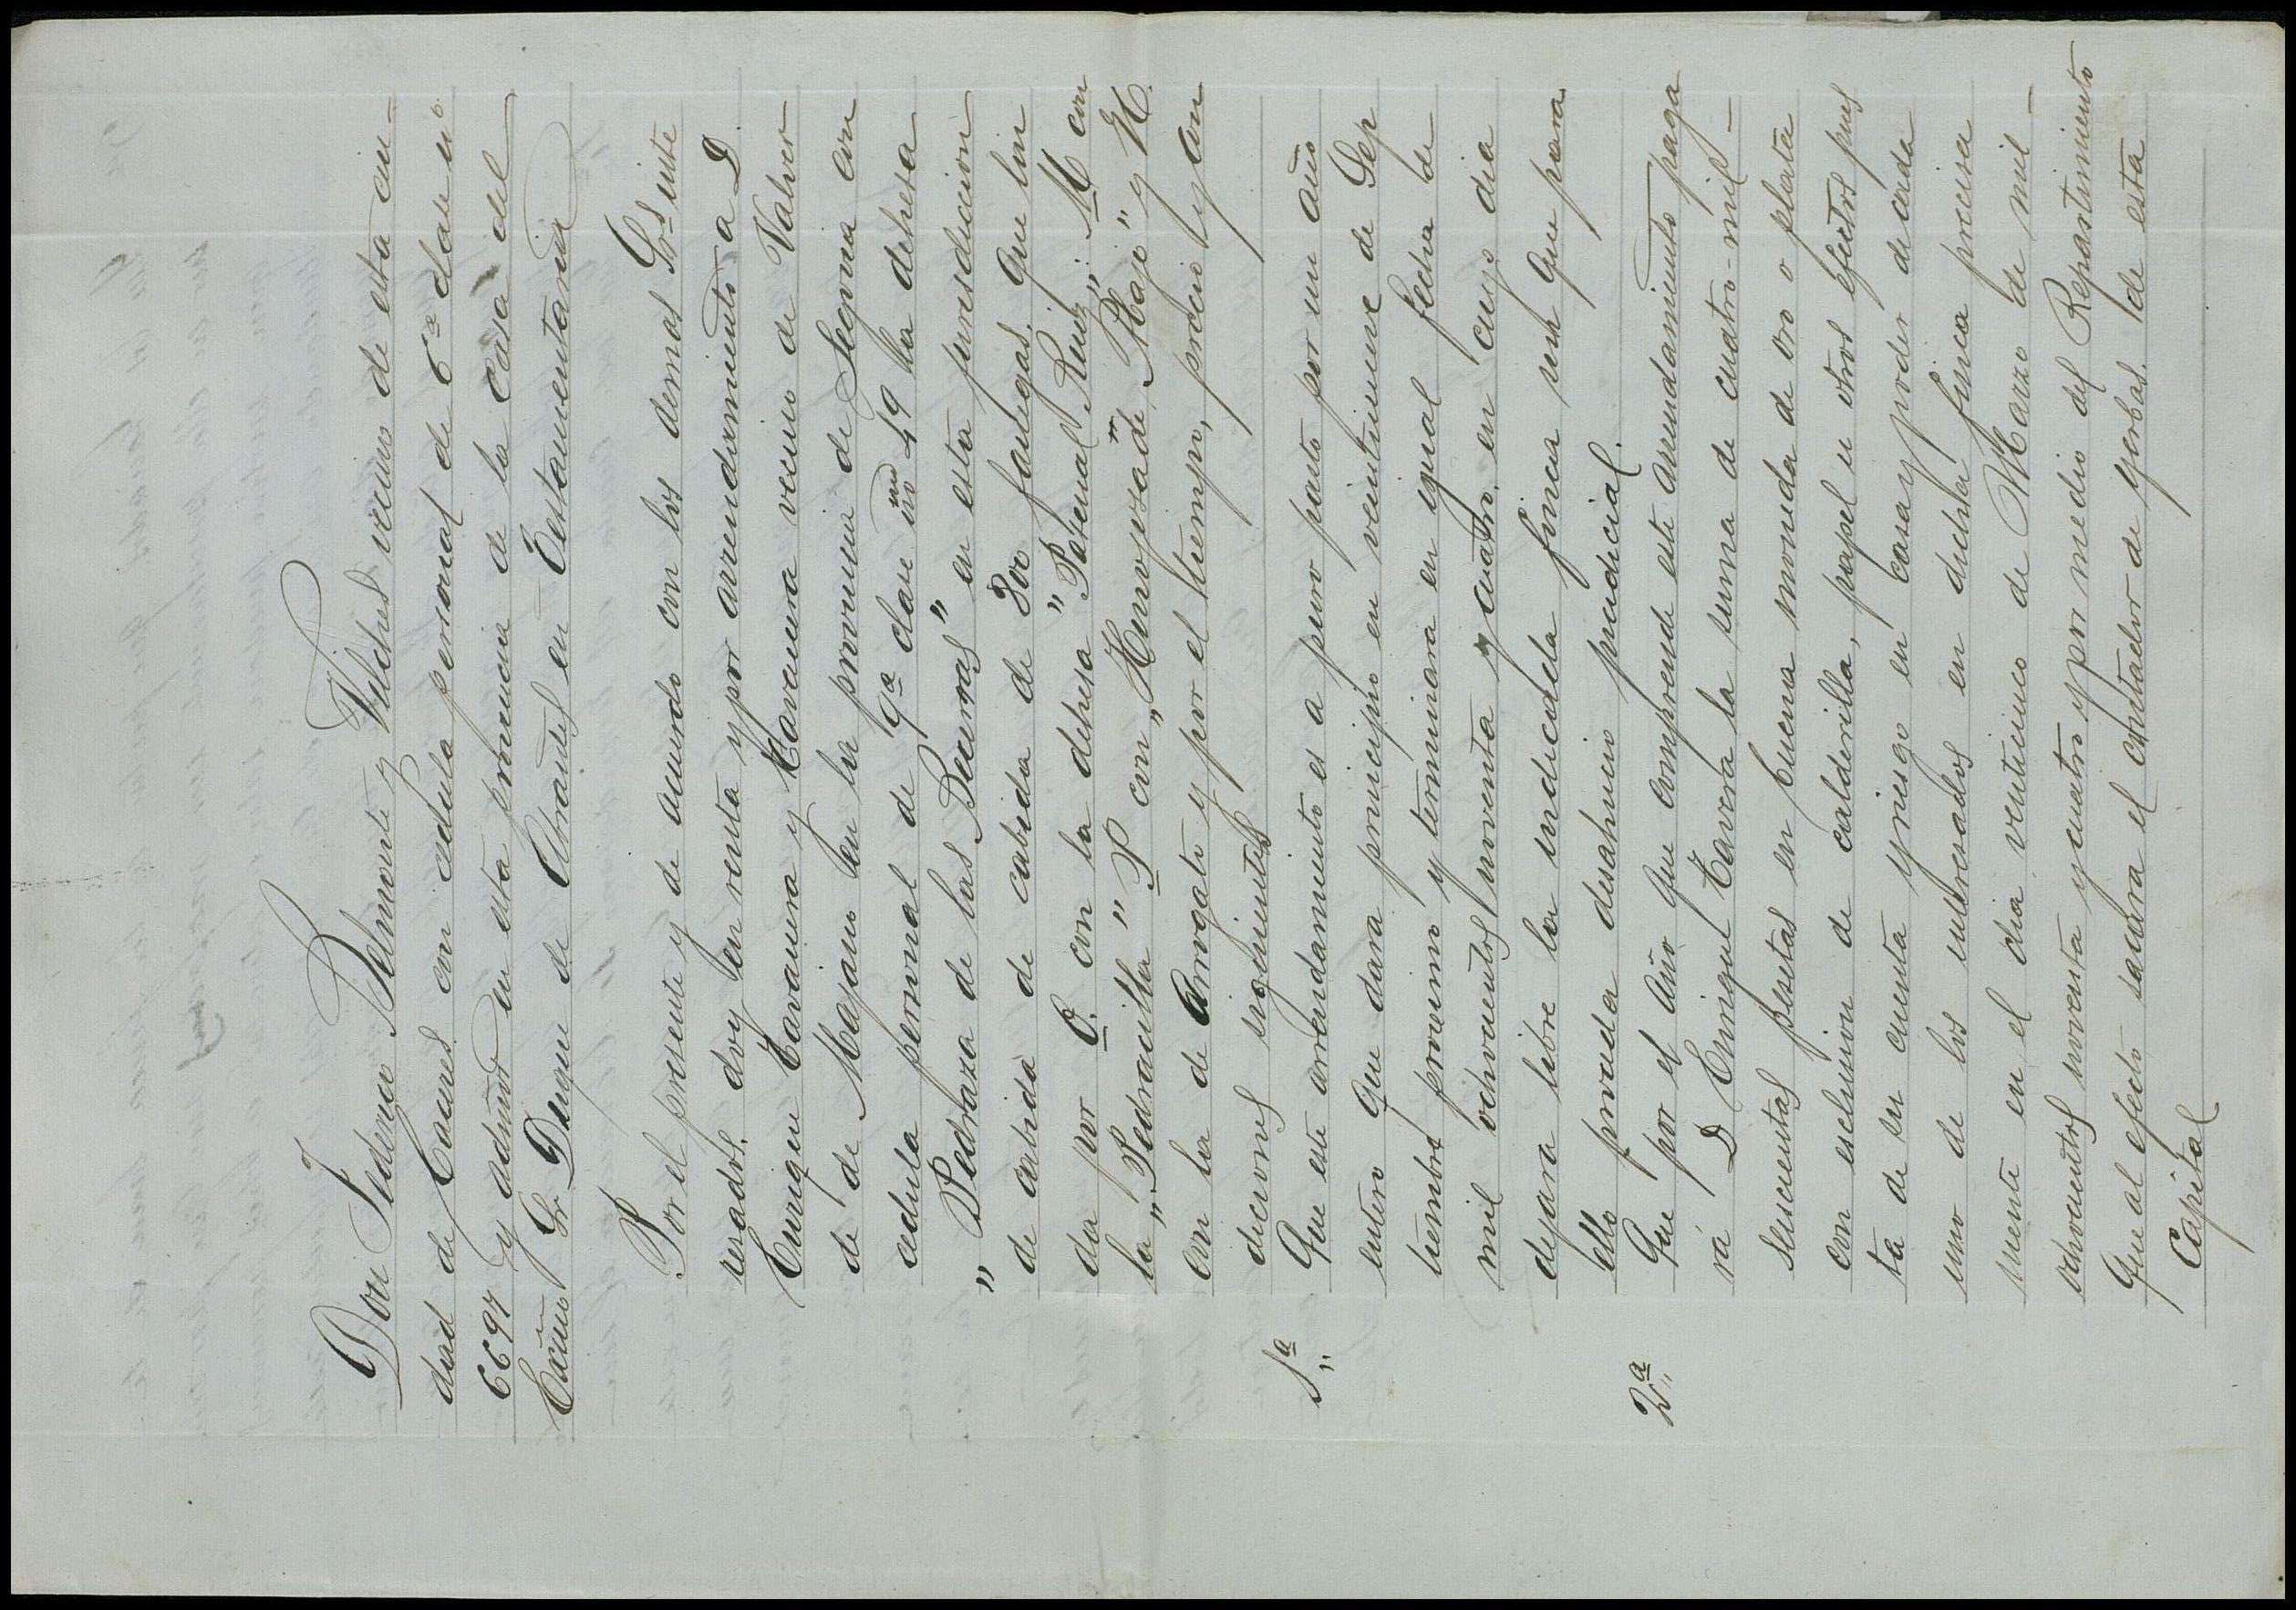 Don Federico Belmonte y Vilches vecino de esta ciu-
dad de Caceres con cedula personal de 6ª clase nº
6694 y admor en esta provincia de la casa del
Excmo Sr Duque de Abrantes en Testamentaria
Por el presente y de acuerdo con los demas Srs inte
resados, doy en renta y por arrendamiento a D.
Enrique Tavanera y Tavanera vecino de Valver
de de Majano en la provincia de Segovia con
cedula personal de 9ª clase 49 la dehesa
" Pedraza de las Becerras " en esta juresdiccion
de cabida de cabida de 300 fanegas, que lin
da por O. con la dehesa " Pascual Ruiz "; M con
la " Pedracilla " P con " Hinojosa de Abajo " y N.
con la de Arrogato y por el tiempo, precio y con
diciones siguientes
1ª Que este arrendamiento es a puro pasto por un año
entero que dara principio en veintinueve de Sep
tiembre procsimo y terminara en igual fecha de
mil ochocientos noventa y cuatro, en cuyo dia
dejara libre la indicada finca sin que para
ello proceda desahucio judicial.
2ª Que por el año que comprende este arrendamiento paga
rá D Enrique Tavera la suma de cuatro-mil-
seiscientas pesetas en buena moneda de oro o plata
con esclusion de calderilla, papel u otros efectos pues
ta de su cuenta y riesgo en casa y poder de cada
uno de los interesados en dicha finca precisa
mente en el dia veinticinco de Marzo de mil-
ochocientos noventa y cuatro y por medio del Repartimiento
que al efecto sacara el contador de yerbas, de esta
Capital